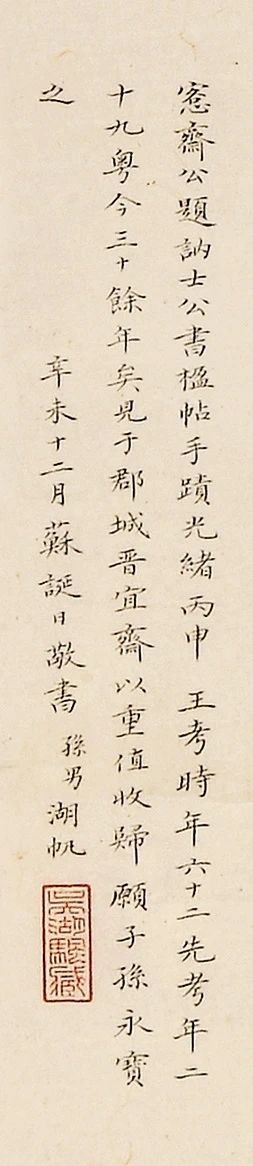 愙齋公題訥士公書楹帖手蹟光緒丙申 王考時年六十二先考年二
十九粤今三十餘年矣見于郡城晋宜齋以重值收歸願子孫永寶
之
辛未十二月蘇誕日敬書 孫男湖帆
吳湖颿藏